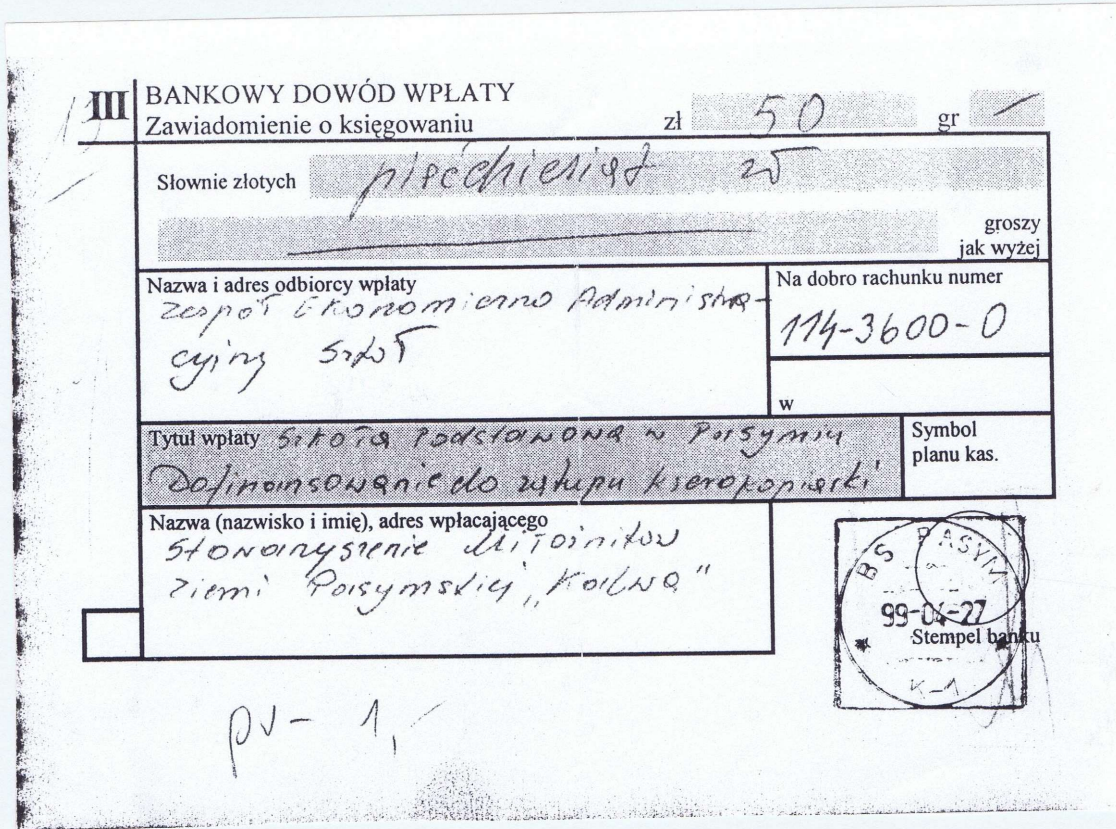 III BANKOWY DOWÓD WPŁATY
Zawiadomienie o księgowaniu zł 50 gr —
Słownie złotych pięćdziesiąt zł
groszy
jak wyżej
Nazwa i adres odbiorcy wpłaty
Zespół Ekonomiczno Administra-
cyjny Szkół
Na dobro rachunku numer
114-3600-0
w
Tytuł wpłaty Szkoła Podstawowa w Pasymiu
Dofinansowanie do zakupu kserokopiarki
Symbol
planu kas.
Nazwa (nazwisko i imię), adres wpłacającego
Stowarzyszenie Miłośników
Ziemi Pasymskiej „Kalwa"
BS PASYM
99-04-27
Stempel banku
K-1
pv- 1,-